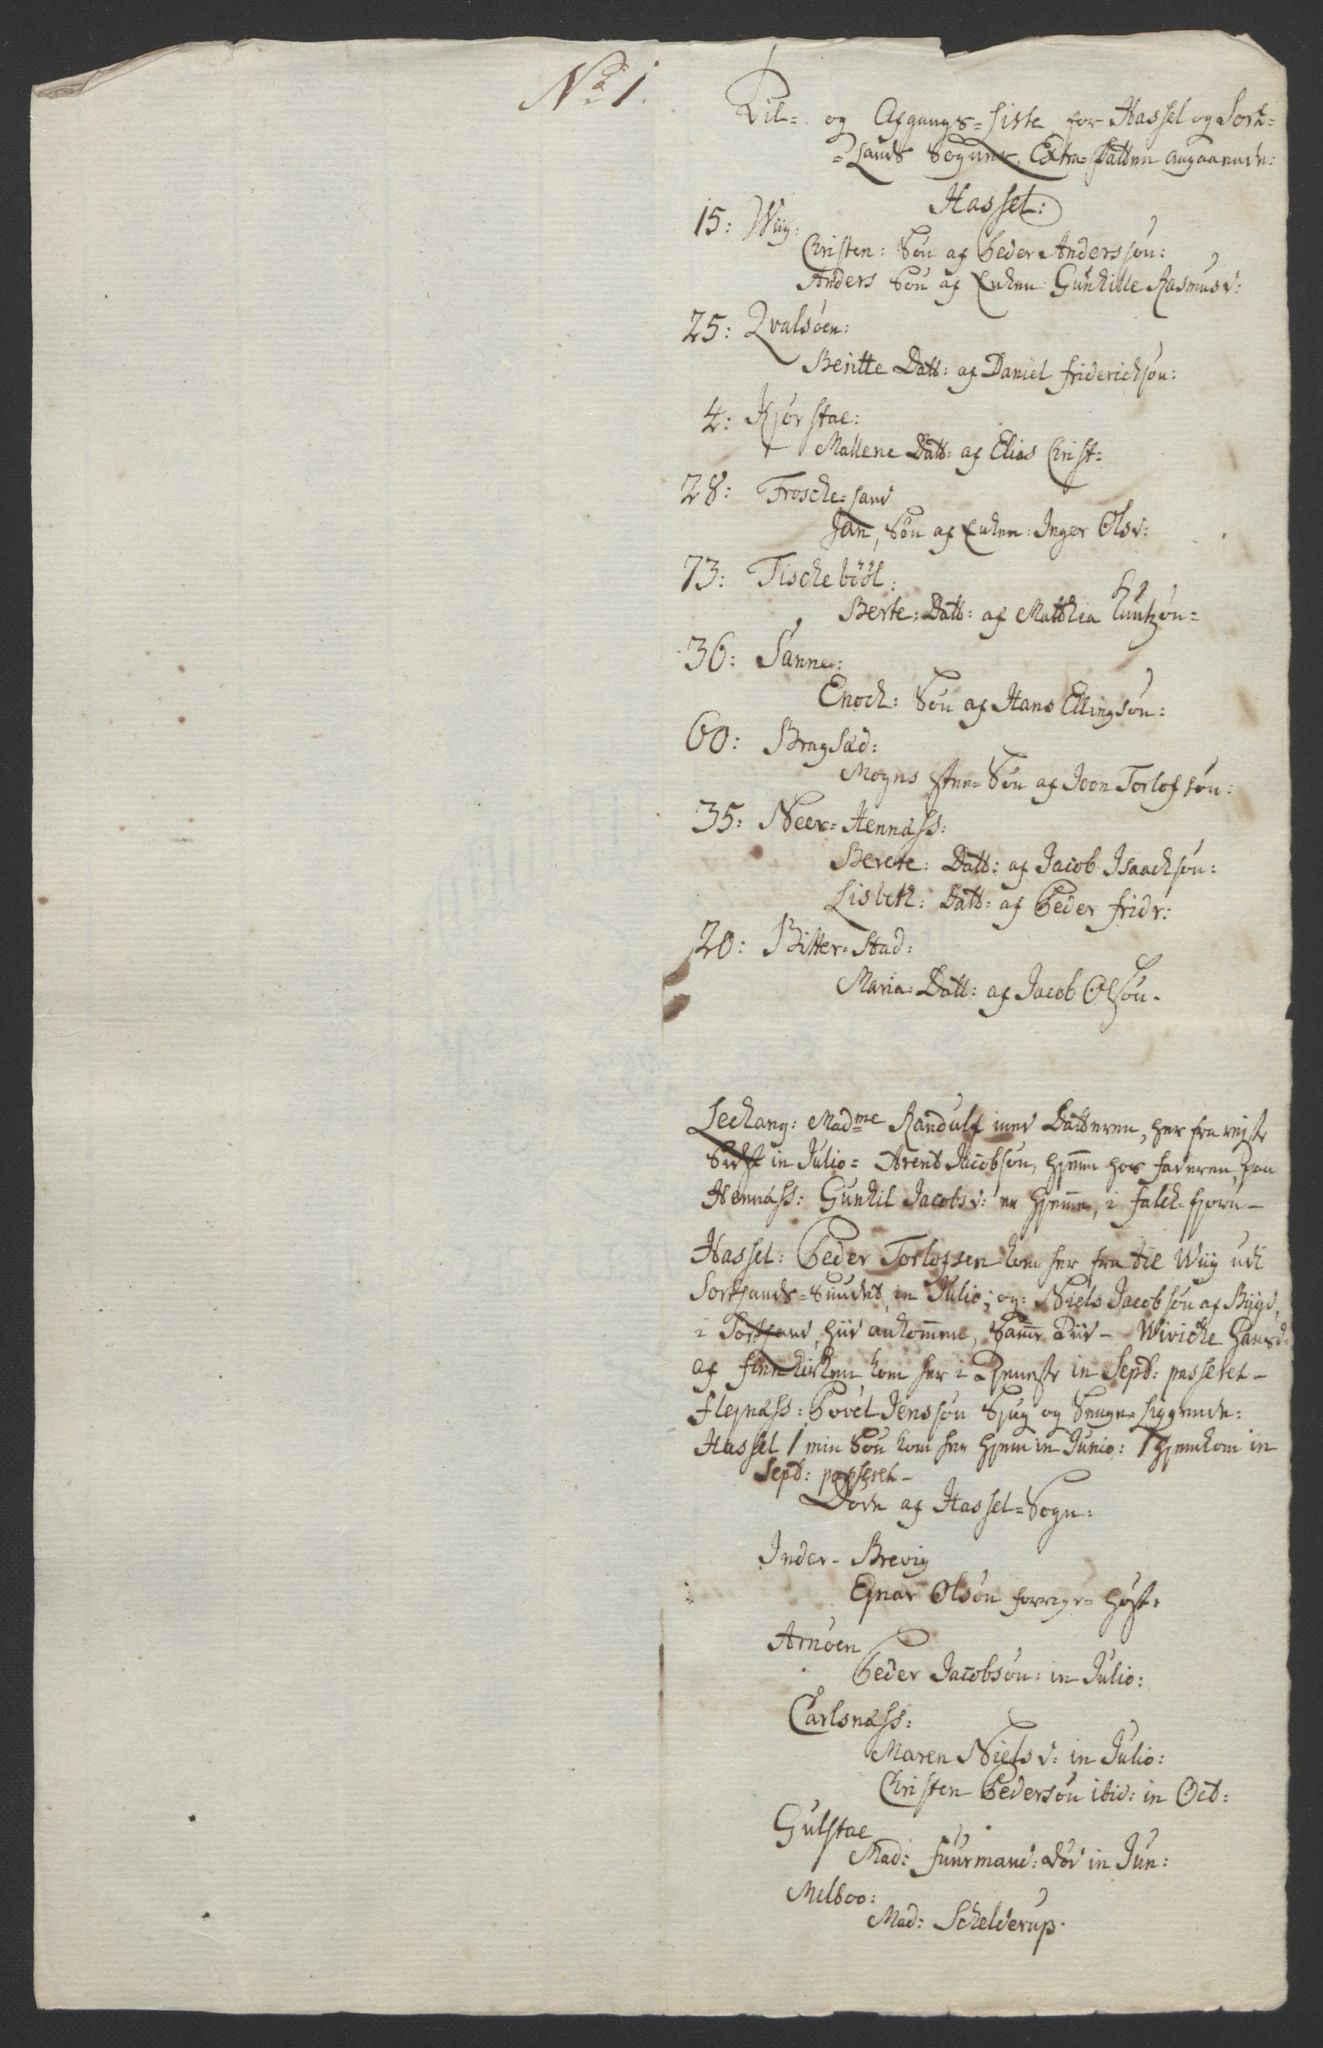 No 1.
Til- og Afgangs-Liste for Hassel og Sort-
-lands Sogner, Extra-Skatten angaaende:
Hassel:
15: Wiig:
Christen: Søn af Peder Anderssøn:
Anders Søn af Enken Gunhille Rasmusd:
25: Qvalsøen:
Beritte Datt: af Daniel Friderichsøn:
4: Kjørstae:
Mallene Datt: af Elias Christ-
28: Froschesand
Jan, Søn af Enken: Inger Olsd:
73: Tischebööl:
Berte: Datt: af Matthia Knutzøn-
36: Sanne:
Enoch: Søn af Hans Ellingsøn:
60: Bragsæd:
Mogns Steen Søn af Joen Torlofsøn:
35: Neer-Hennæss:
Berete: Datt: af Jacob Isaachsøn:
Lisbeth: Datt: af Peder Fridr:
20: Bitter-Stad:
Maria: Datt: af Jacob Olsøn-
Lechang: Madme Randulf med Datteren, her fra reiste
sidst in Julio- Arent Jacobsøn, hjemme hos faderen, paa
Hennæss: Gunhil Jacobsd: er hjemme, i Falch-fjorn-
Hassel: Peder Torlofsen kom her fra til Wiig udi
Sortlands-Sundet, in Julio; og: Niels Jacobsøn af Bygd,
i Sortland, hid ankommen, samme Tiid- Wiviche Hansd:
af Finnkirken kom her i Tjeneste in Septb: passeret-
Flejnæss: Povel Jenssøn Sjug og Senge-liggende:
Hassel 1 min Søn kom her hjem in Junio: 1 hjemkom in
Septb: passeret-
Døde af Hassel-Sogn:
Inder- Brevig
Ejnar Olsøn forrige- Høst:
Arnøen
Peder Jacobsøn: in Julio:
Carlsnæss:
Maren Nielsd: in Julio:
Christen Pedersøn ibid: in Oct:
Gulstae
Mad: Fuurmand: død in Jun:
Melboo:
Mad: Schelderup.